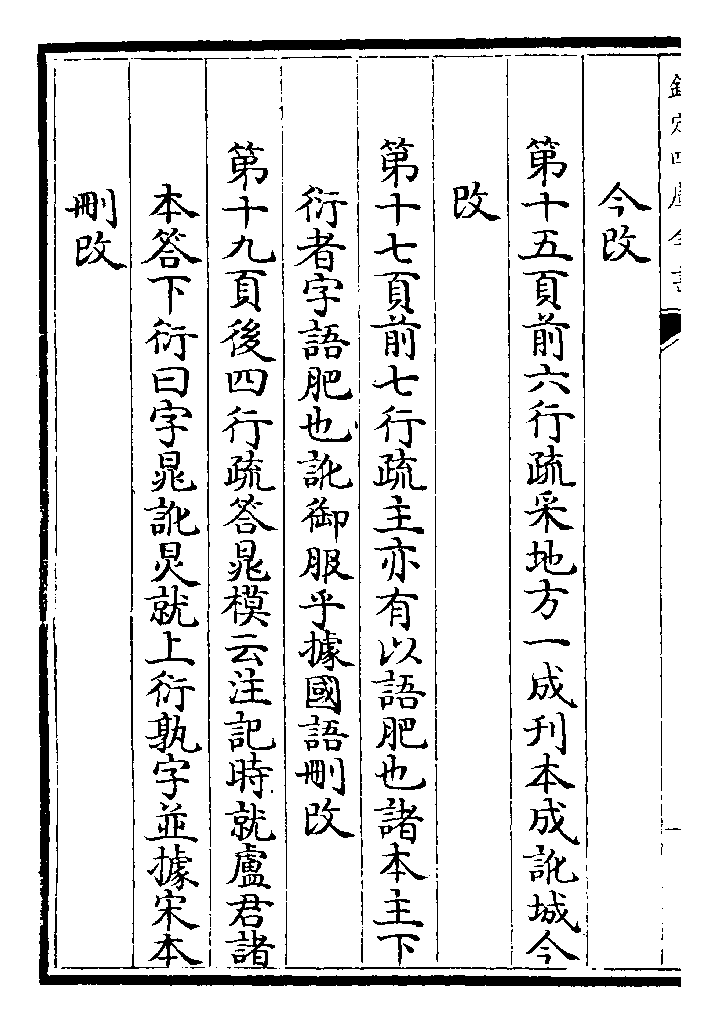 欽定四庫全書
今改
第十五頁前六行疏采地方一成刋本成訛城今
改
第十七頁前七行疏主亦有以語肥也諸本主下
衍者字語肥也訛御服乎據國語刪改
第十九頁後四行疏答晁模云注記時就盧君諸
本答下衍曰字晁訛炅就上衍孰字並據宋本
刪改